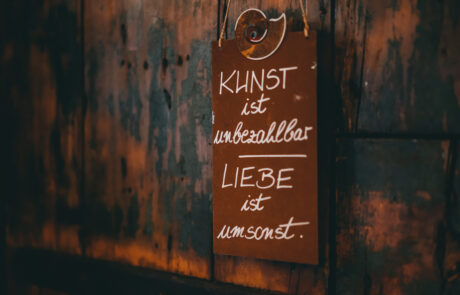 KUNST
ist
unbezahlbar
LIEBE
ist
umsonst.